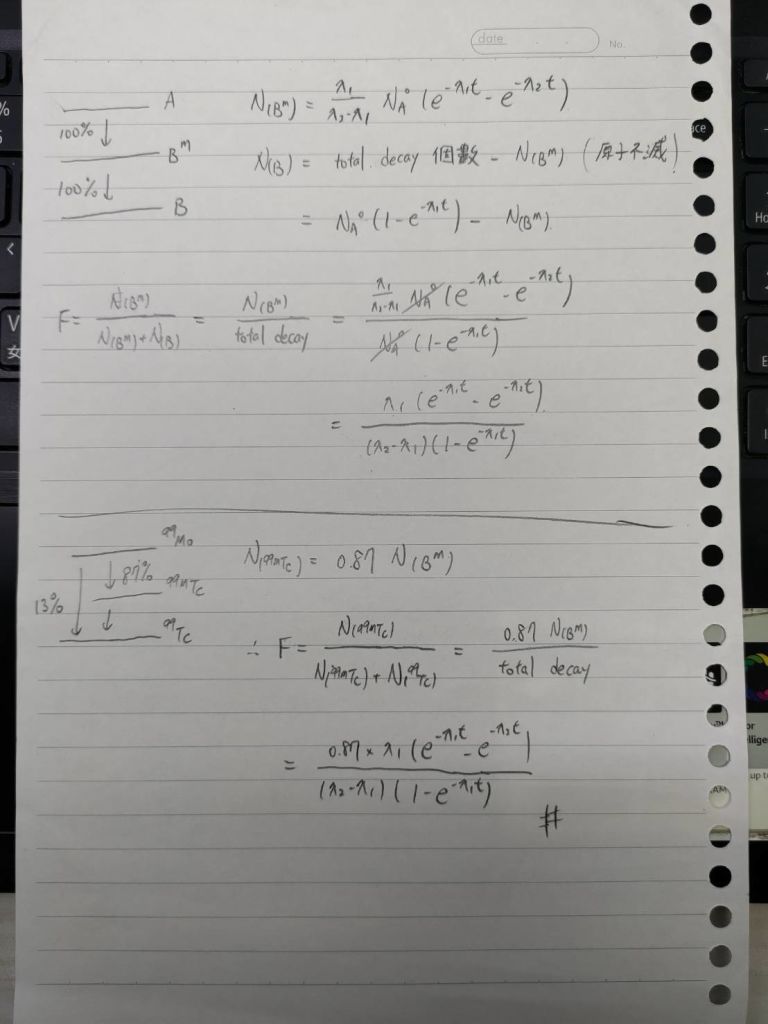 date . . No.
A
100% ↓
Bᵐ
100% ↓
B
N(Bᵐ) = λ₁/(λ₂-λ₁) N_A° (e^-λ₁t - e^-λ₂t)
N(B) = total decay 個數 - N(Bᵐ) (原子不滅)
= N_A° (1-e^-λ₁t) - N(Bᵐ)
F = N(Bᵐ)/(N(Bᵐ)+N(B)) = N(Bᵐ)/total decay = λ₁/(λ₂-λ₁) N_A° (e^-λ₁t - e^-λ₂t) / N_A° (1-e^-λ₁t)
= λ₁ (e^-λ₁t - e^-λ₂t) / (λ₂-λ₁)(1-e^-λ₁t)
⁹⁹Mo
↓ 87% ⁹⁹ᵐTc
13% ↓ ↓
⁹⁹Tc
N(⁹⁹ᵐTc) = 0.87 N(Bᵐ)
∴ F = N(⁹⁹ᵐTc)/(N(⁹⁹ᵐTc) + N(⁹⁹Tc)) = 0.87 N(Bᵐ)/total decay
= 0.87 × λ₁ (e^-λ₁t - e^-λ₂t) / (λ₂-λ₁) (1-e^-λ₁t)
#